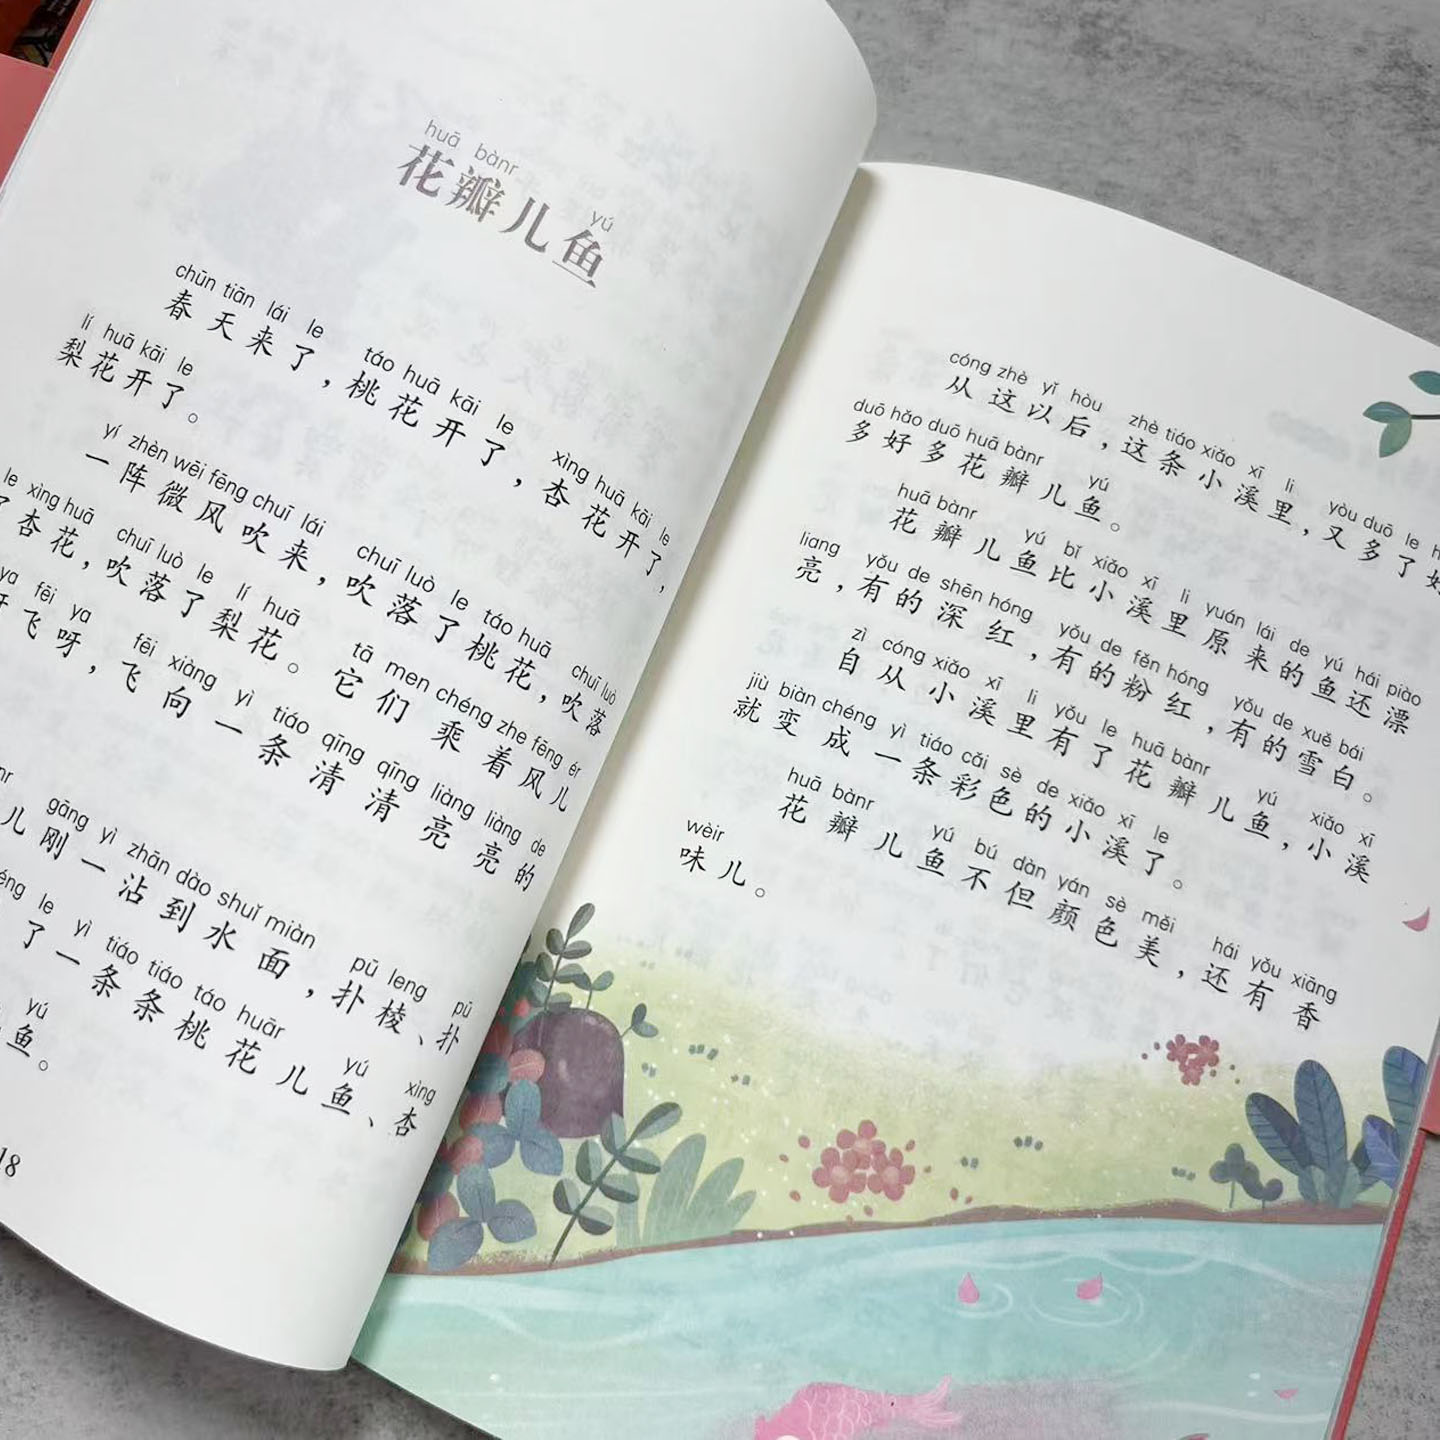 huā bànr yú
花瓣儿鱼
chūn tiān lái le táo huā kāi le xìng huā kāi le
春天来了，桃花开了，杏花开了，
lí huā kāi le
梨花开了。
yí zhèn wēi fēng chuī lái chuī luò le táo huā chuī luò
一阵微风吹来，吹落了桃花，吹落
le xìng huā chuī luò le lí huā tā men chéng zhe fēng ér
了杏花，吹落了梨花。它们乘着风儿
ya fēi ya fēi xiàng yì tiáo qīng qīng liàng liàng de
呀飞呀，飞向一条清清亮亮的
gāng yì zhān dào shuǐ miàn pū leng pū
儿刚一沾到水面，扑棱、扑
le yì tiáo tiáo táo huār yú xìng
了一条条桃花儿鱼、杏
yú
鱼。
18
cóng zhè yǐ hòu zhè tiáo xiǎo xī li yòu duō le
从这以后，这条小溪里，又多了好
duō hǎo duō huā bànr yú
多好多花瓣儿鱼。
huā bànr yú bǐ xiǎo xī li yuán lái de yú hái piào
花瓣儿鱼比小溪里原来的鱼还漂
liang yǒu de shēn hóng yǒu de fěn hóng yǒu de xuě bái
亮，有的深红，有的粉红，有的雪白。
zì cóng xiǎo xī li yǒu le huā bànr yú xiǎo xī
自从小溪里有了花瓣儿鱼，小溪
jiù biàn chéng yì tiáo cǎi sè de xiǎo xī le
就变成一条彩色的小溪了。
huā bànr yú bú dàn yán sè měi hái yǒu xiāng
花瓣儿鱼不但颜色美，还有香
wèir
味儿。